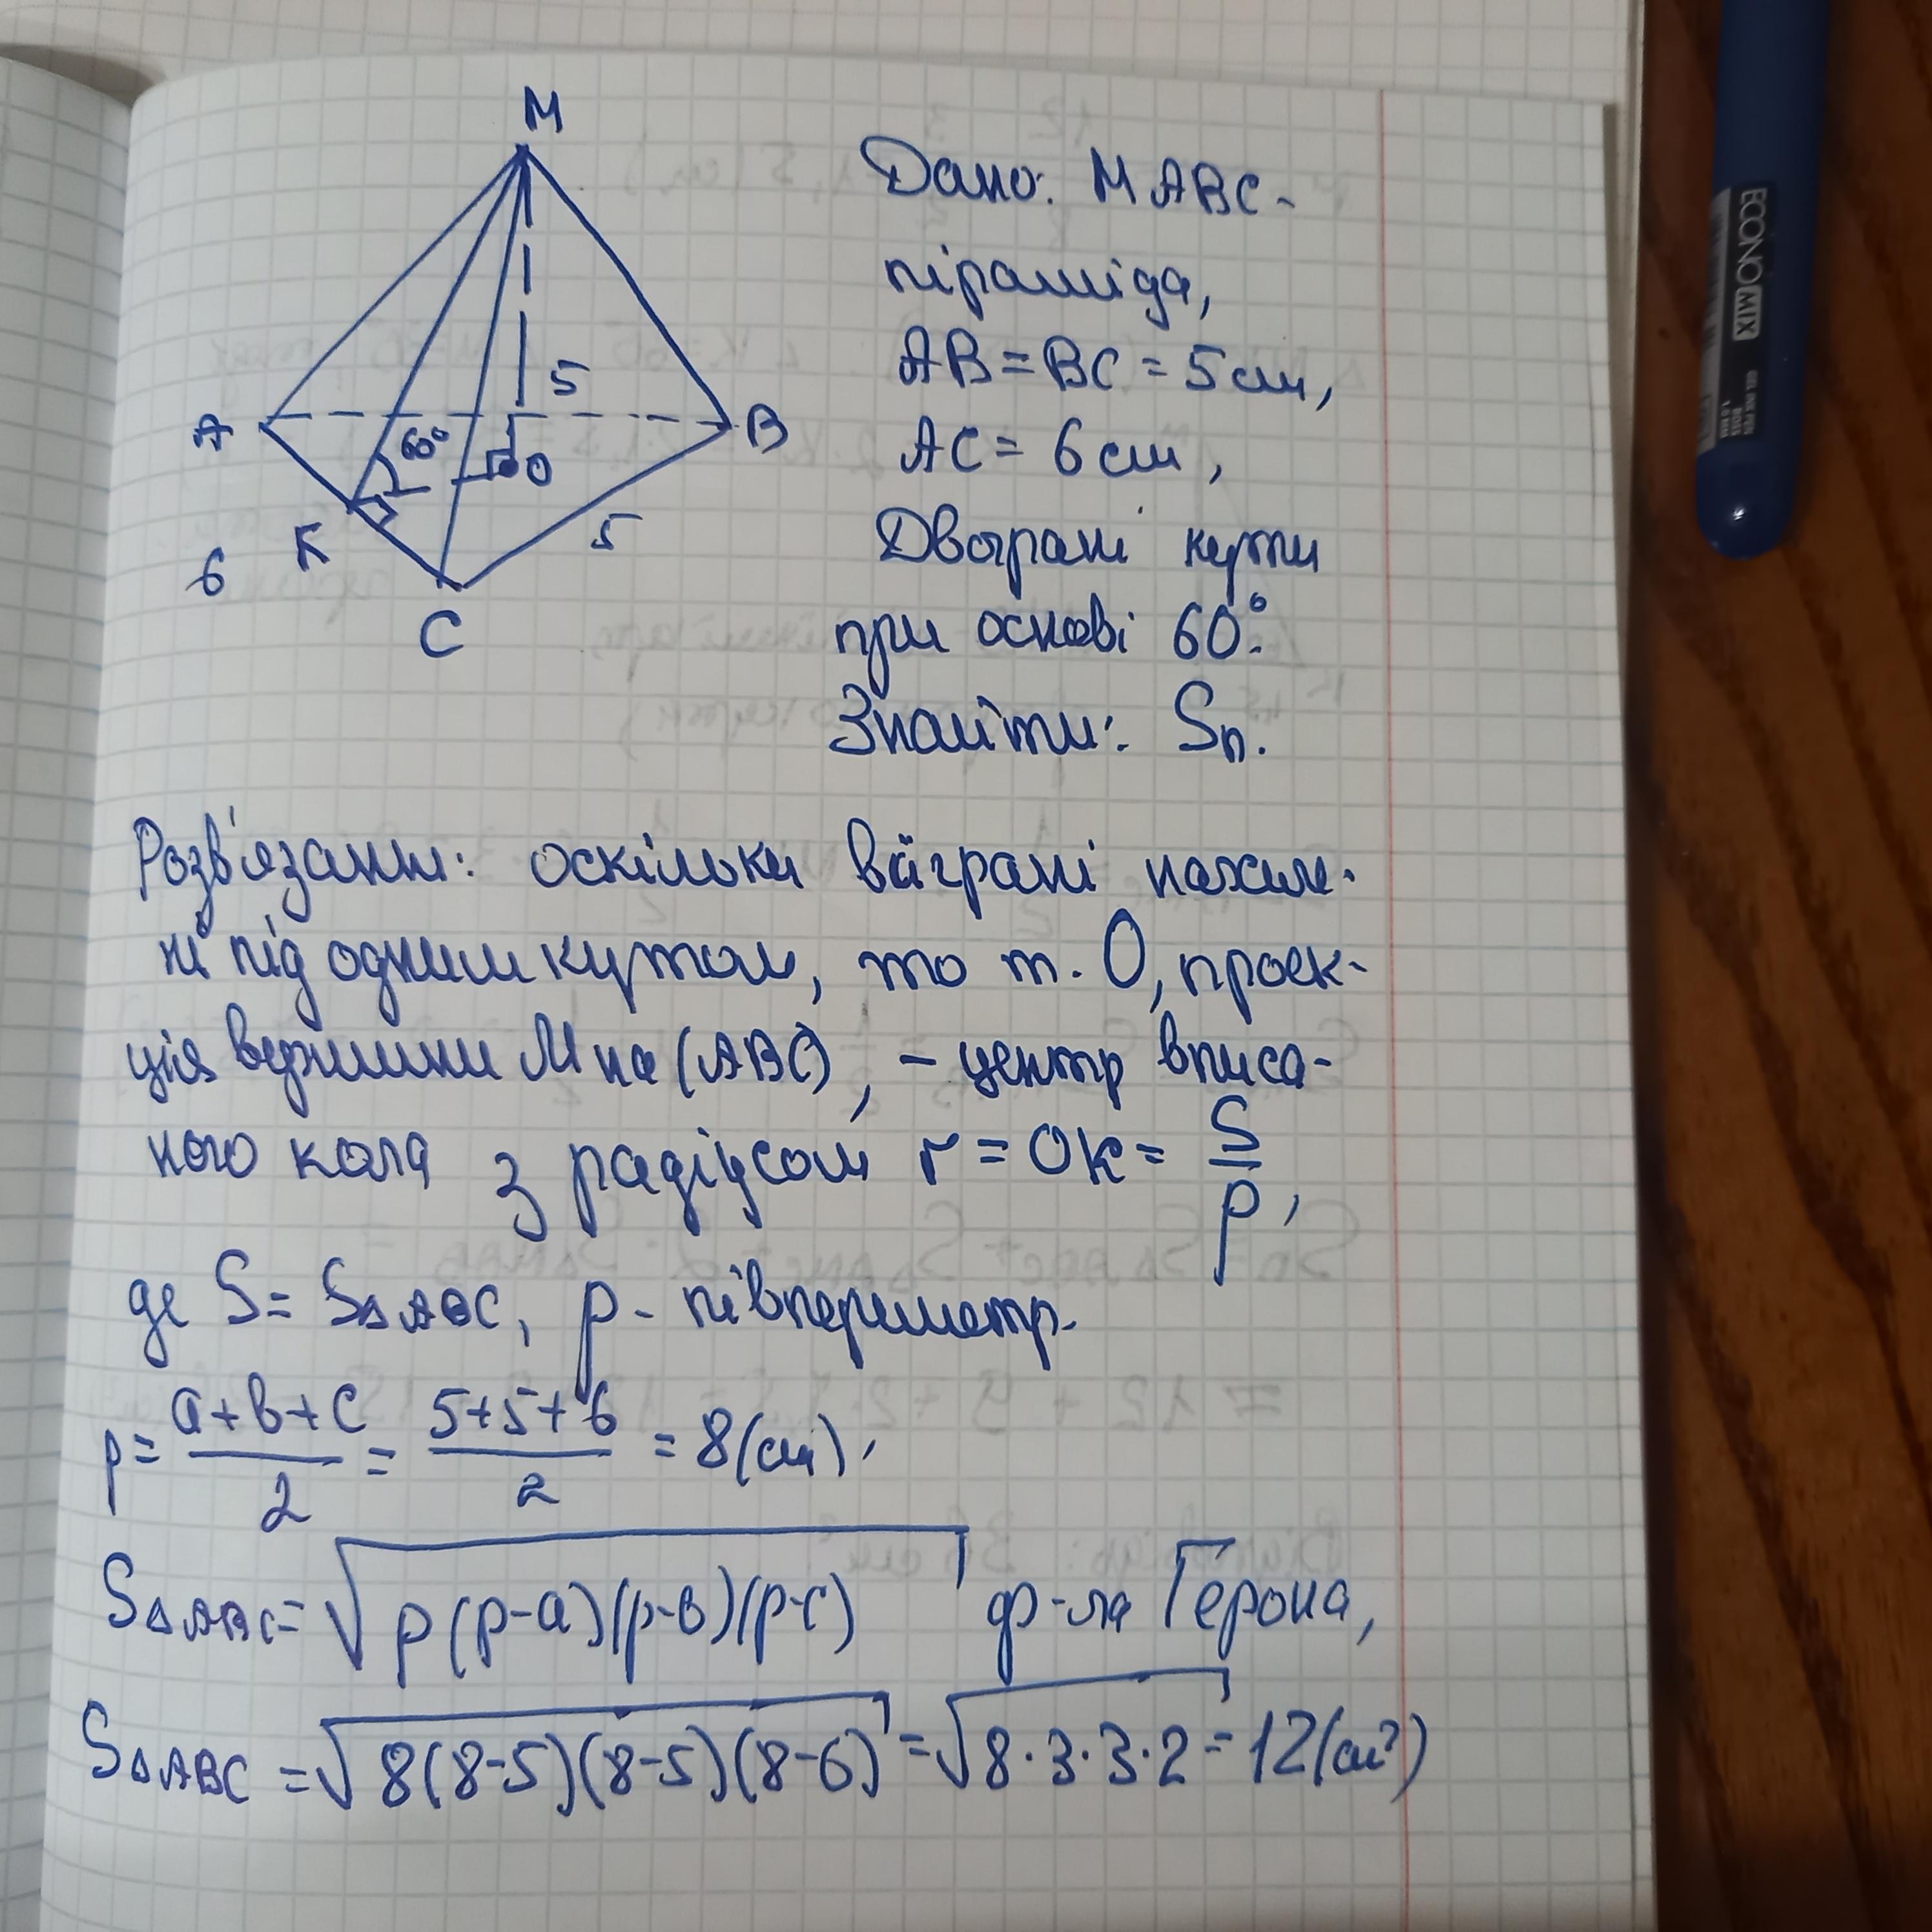 M
A
B
C
K
O
60°
5
5
6
Дано: MABC-
піраміда,
AB = BC = 5 см,
AC = 6 см,
Двогранні кути
при основі 60°.
Знайти: Sп.
Розв'язання: оскільки всі грані нахиле-
ні під одним кутом, то т. О, проек-
ція вершини М на (ABC), – центр вписа-
ного кола з радіусом r = OK = S/p,
де S = S△ABC, p - півпериметр.
p = (a+b+c)/2 = (5+5+6)/2 = 8(см),
S△ABC = √(p(p-a)(p-b)(p-c)) ф-ла Герона,
S△ABC = √(8(8-5)(8-5)(8-6)) = √(8·3·3·2) = 12(см²)
ECONOMIX